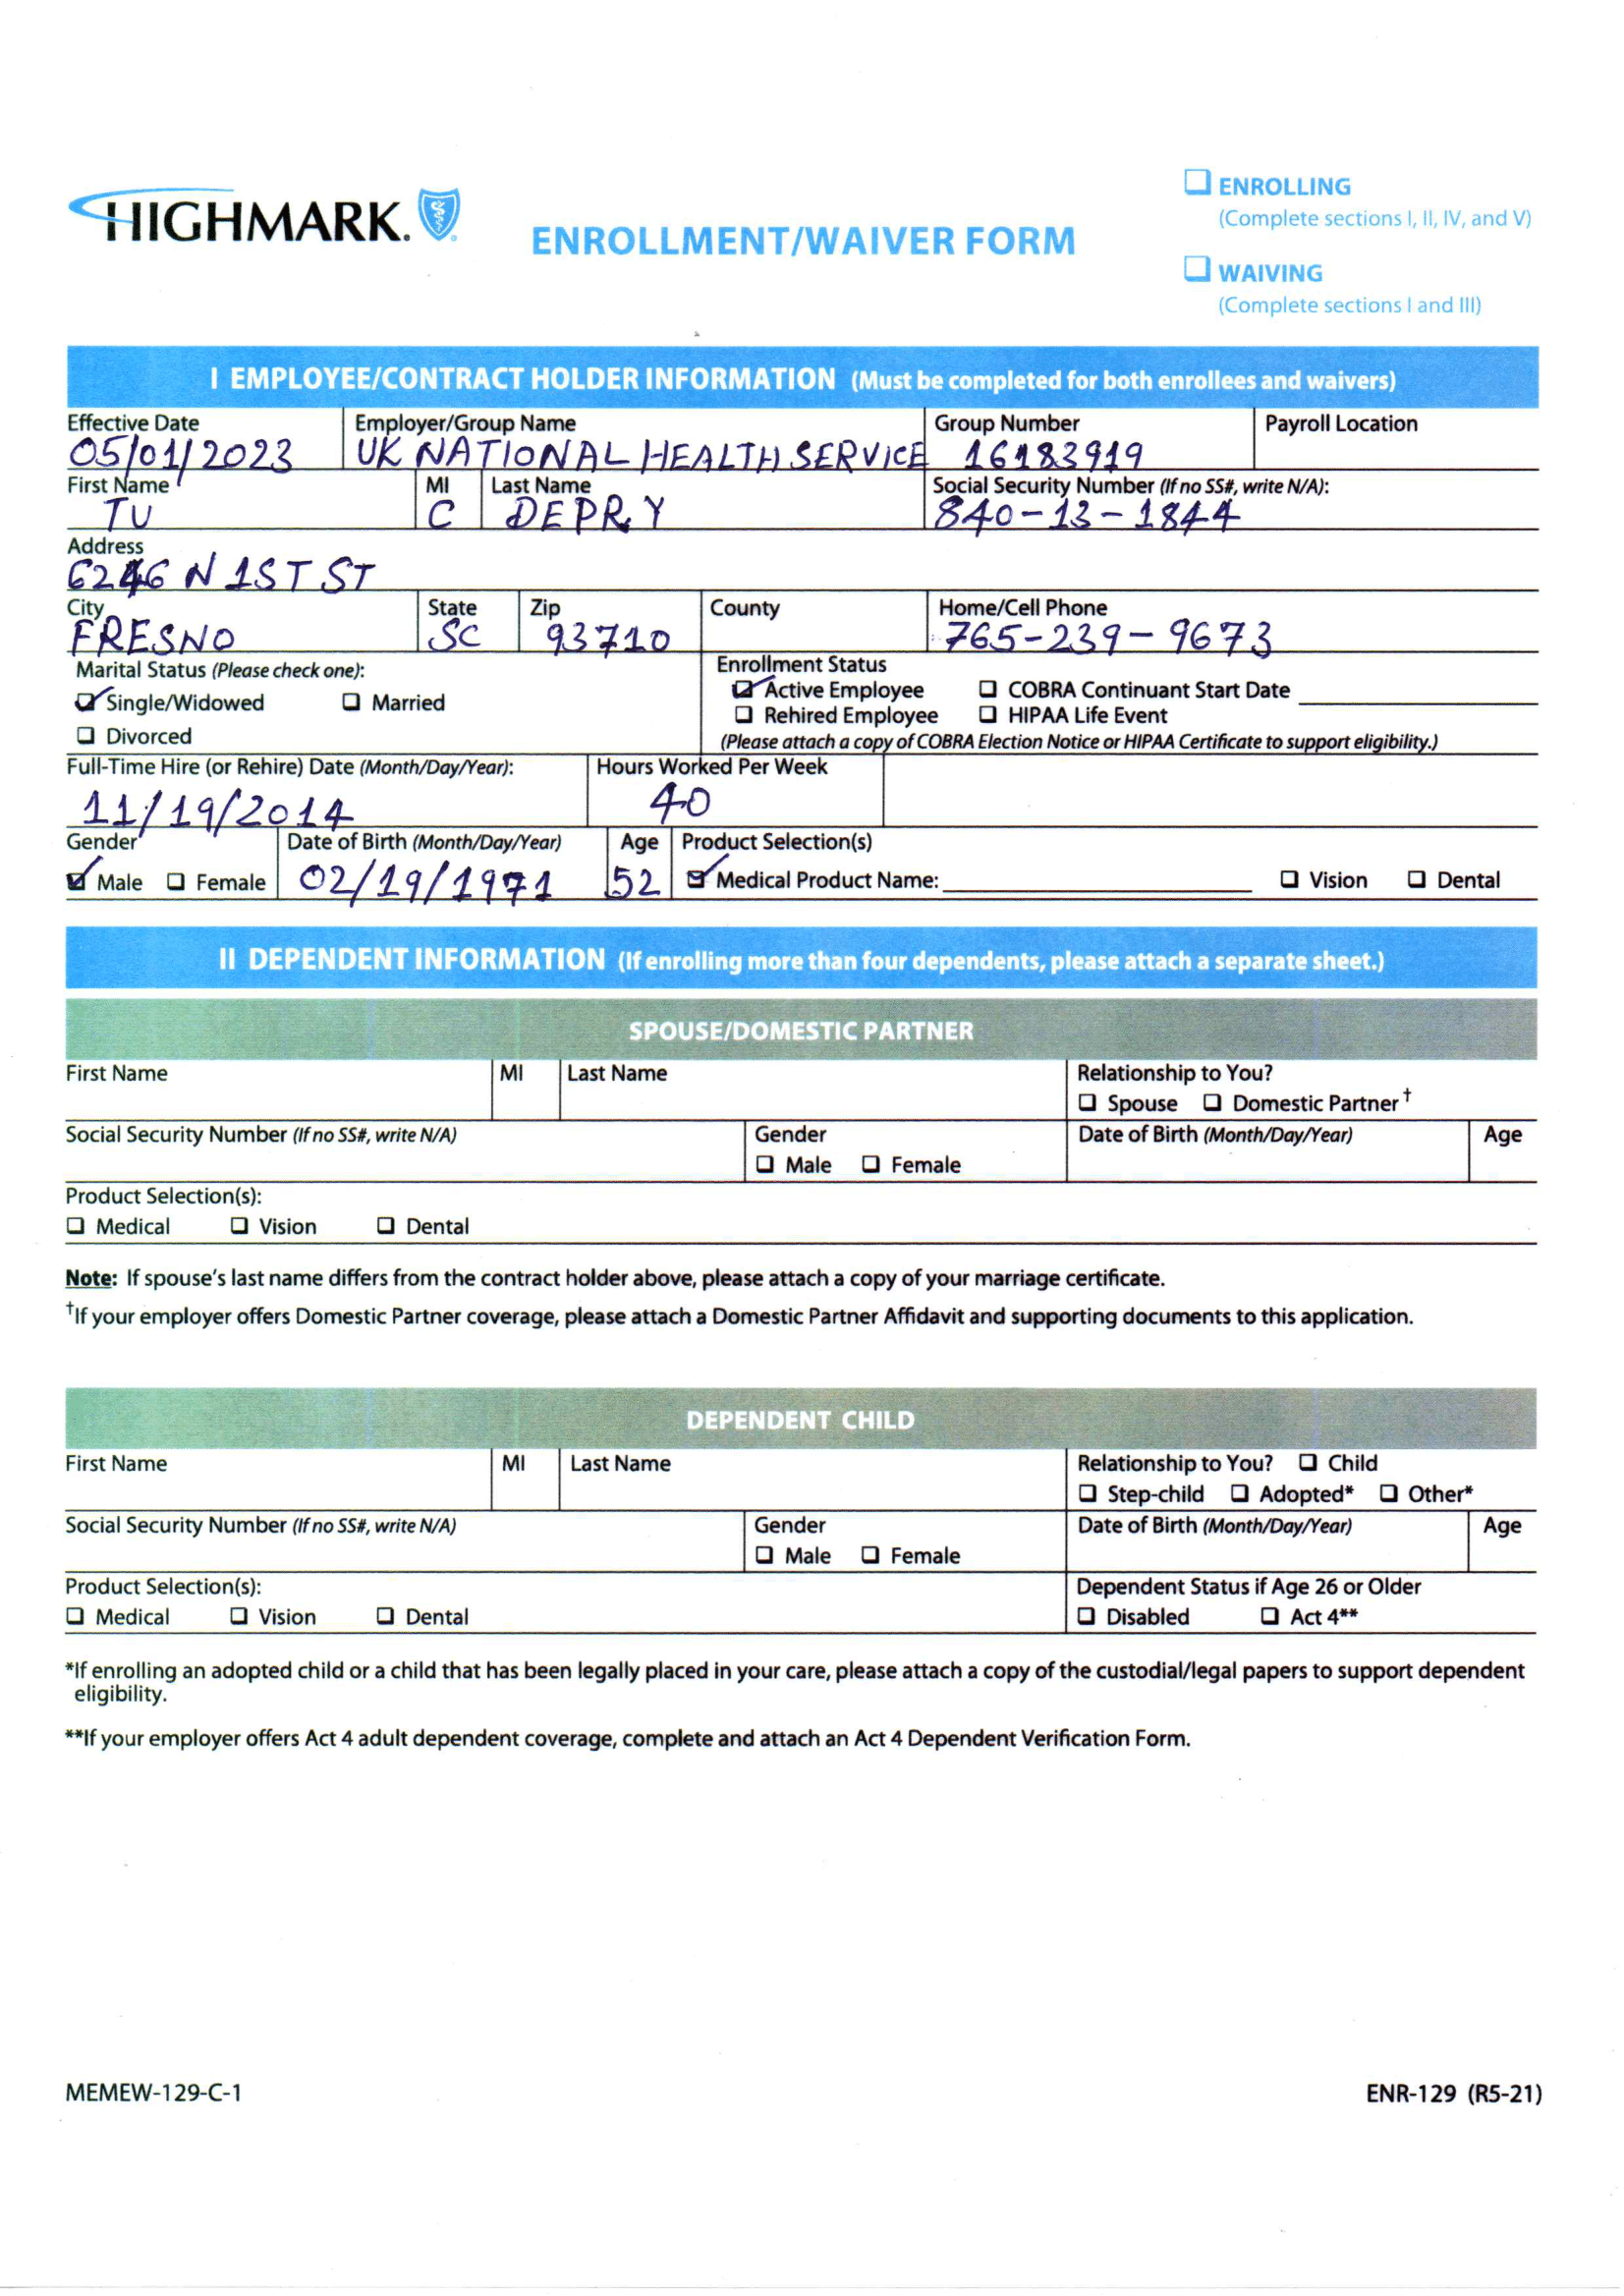 HIGHMARK.
ENROLLMENT/WAIVER FORM
❑ ENROLLING
(Complete sections I, II, IV, and V)
❑ WAIVING
(Complete sections I and III)
I EMPLOYEE/CONTRACT HOLDER INFORMATION (Must be completed for both enrollees and waivers)
Effective Date Employer/Group Name Group Number Payroll Location
05/01/2023 UK NATIONAL HEALTH SERVICE 16183919
First Name MI Last Name Social Security Number (If no SS#, write N/A):
TU C DEPRY 840-13-1844
Address
6246 N 1ST ST
City State Zip County Home/Cell Phone
FRESNO SC 93710 765-239-9673
Marital Status (Please check one): Enrollment Status
☑ Single/Widowed ❑ Married ☑ Active Employee ❑ COBRA Continuant Start Date
❑ Rehired Employee ❑ HIPAA Life Event
❑ Divorced (Please attach a copy of COBRA Election Notice or HIPAA Certificate to support eligibility.)
Full-Time Hire (or Rehire) Date (Month/Day/Year): Hours Worked Per Week
11/19/2014 40
Gender Date of Birth (Month/Day/Year) Age Product Selection(s)
☑ Male ❑ Female 02/19/1971 52 ☑ Medical Product Name: ❑ Vision ❑ Dental
II DEPENDENT INFORMATION (If enrolling more than four dependents, please attach a separate sheet.)
SPOUSE/DOMESTIC PARTNER
First Name MI Last Name Relationship to You?
❑ Spouse ❑ Domestic Partner†
Social Security Number (If no SS#, write N/A) Gender Date of Birth (Month/Day/Year) Age
❑ Male ❑ Female
Product Selection(s):
❑ Medical ❑ Vision ❑ Dental
Note: If spouse's last name differs from the contract holder above, please attach a copy of your marriage certificate.
†If your employer offers Domestic Partner coverage, please attach a Domestic Partner Affidavit and supporting documents to this application.
DEPENDENT CHILD
First Name MI Last Name Relationship to You? ❑ Child
❑ Step-child ❑ Adopted* ❑ Other*
Social Security Number (If no SS#, write N/A) Gender Date of Birth (Month/Day/Year) Age
❑ Male ❑ Female
Product Selection(s): Dependent Status if Age 26 or Older
❑ Medical ❑ Vision ❑ Dental ❑ Disabled ❑ Act 4**
*If enrolling an adopted child or a child that has been legally placed in your care, please attach a copy of the custodial/legal papers to support dependent
eligibility.
**If your employer offers Act 4 adult dependent coverage, complete and attach an Act 4 Dependent Verification Form.
MEMEW-129-C-1 ENR-129 (R5-21)